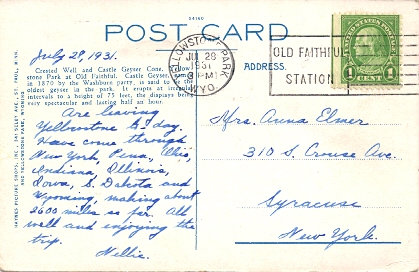 24160
POST CARD
July 28, 1931.
Crested Well and Castle Geyser Cone, Yellow-
stone Park at Old Faithful. Castle Geyser, named
in 1870 by the Washburn party, is said to be the
oldest geyser in the park. It erupts at irregular
intervals to a height of 75 feet, the displays being
very spectacular and lasting half an hour.
Are leaving
Yellowstone to-day.
Have come through
New York, Pena, Ohio,
Indiana, Illinois,
Iowa, S. Dakota and
Wyoming, making about
2600 miles so far. All
well and enjoying the
trip.
Nellie.
HAYNES PICTURE SHOPS, INC., 341 SELBY AVE., ST. PAUL, MINN.
AND YELLOWSTONE PARK, WYOMING
YELLOWSTONE PARK
JUL 28
1931
WYO.
OLD FAITHFUL
STATION
UNITED STATES POSTAGE
1 CENT 1
ADDRESS.
Mrs. Anna Elmer
310 S. Crouse Ave.
Syracuse
New York.